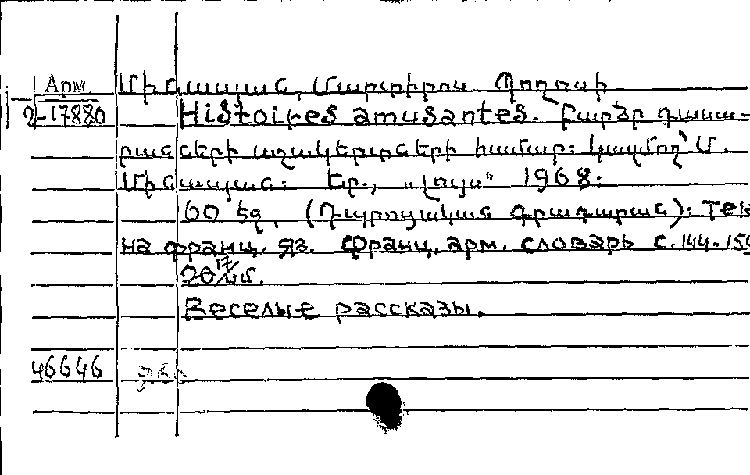 Арм. Մինասյան, Մարտիրոս Պողոսի
2-17880 Histoires amusantes. Բարձր դասա-
րանների աշակերտների համար: Կազմող՝ Մ.
Մինասյան: Եր., „Լույս“ 1968:
60 էջ. (Դպրոցական գրադարան): Тек
на франц. яз. Франц. арм. словарь с. 144-150
20 17 սմ.
Веселые рассказы.
46646